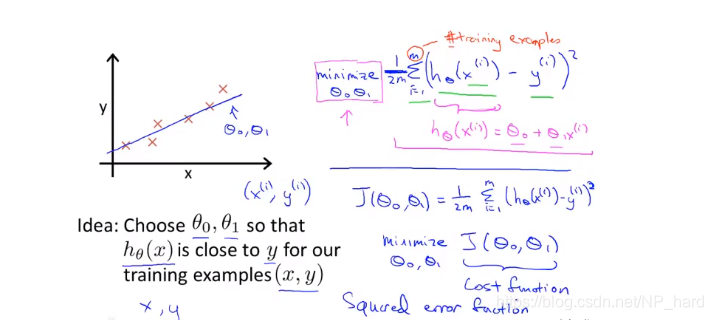 #training examples
minimize
θ₀, θ₁
1/2m ∑ᵢ₌₁ᵐ (hθ(x⁽ⁱ⁾) - y⁽ⁱ⁾)²
hθ(x⁽ⁱ⁾) = θ₀ + θ₁x⁽ⁱ⁾
y
θ₀, θ₁
x
(x⁽ⁱ⁾, y⁽ⁱ⁾)
J(θ₀, θ₁) = 1/2m ∑ᵢ₌₁ᵐ (hθ(x⁽ⁱ⁾) - y⁽ⁱ⁾)²
Idea: Choose θ₀, θ₁ so that
hθ(x) is close to y for our
training examples (x, y)
x, y
minimize J(θ₀, θ₁)
θ₀, θ₁
Cost function
Squared error fuction
https://blog.csdn.net/NP_hard